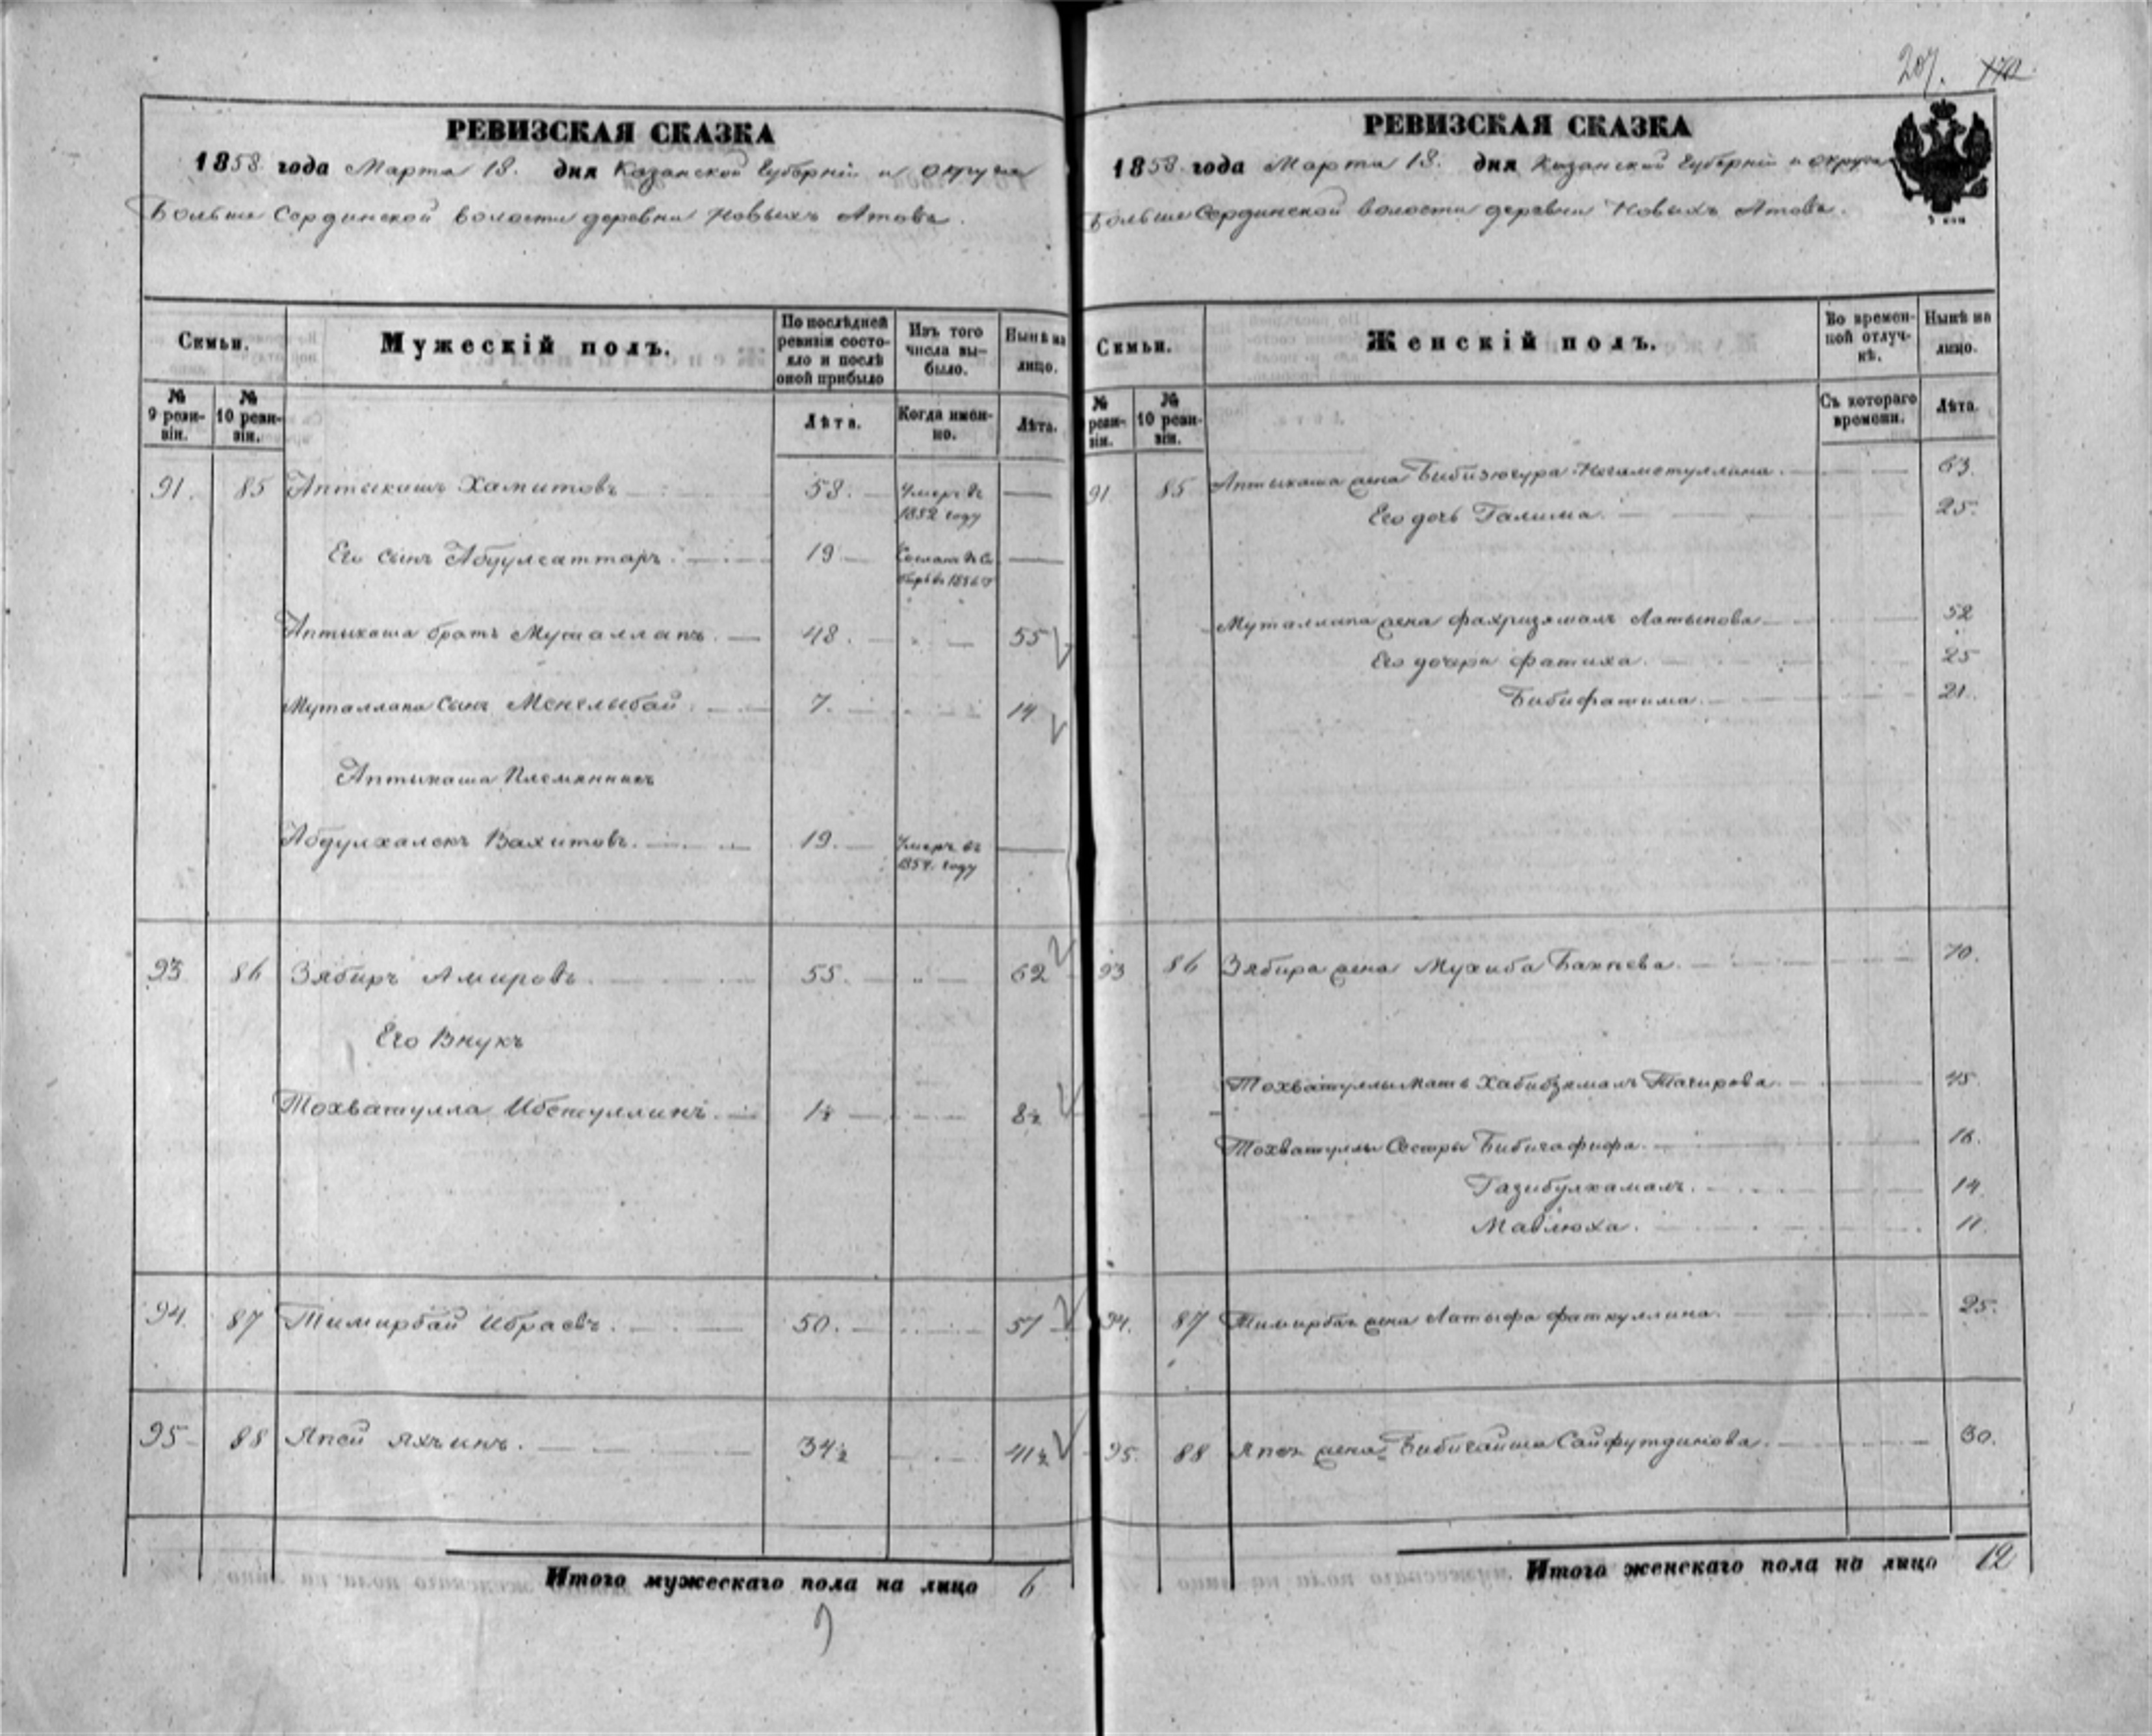 207. 170
РЕВИЗСКАЯ СКАЗКА
1858 года Марта 18. дня Казанской Губерніи и округа
Больше Сердинской волости деревни Новыхъ Атовъ.
Семьи.
Мужескій полъ.
По послѣдней ревизіи состояло и послѣ оной прибыло
Изъ того числа выбыло.
Нынѣ на лицо.
№ 9 ревизіи.
№ 10 ревизіи.
Лѣта.
Когда именно.
Лѣта.
91. 85 Аптыкашъ Хамитовъ 58. Умеръ въ 1852 году
Его сынъ Абдулсаттаръ 19 Сосланъ въ Сибирь въ 1856 г
Аптыкаша братъ Муталлапъ 48. 55
Муталлапа сынъ Менглыбай 7. 14
Аптыкаша Племянникъ
Абдулхалекъ Вахитовъ 19. Умеръ въ 1854. году
93 86 Зябиръ Амировъ 55. 62
Его Внукъ
Тохватулла Ибетуллинъ 1½ 8½
94. 87 Тимирбай Ибраевъ 50. 57
95 88 Япей Яхъинъ 34½ 41½
Итого мужескаго пола на лицо 6
РЕВИЗСКАЯ СКАЗКА
1858 года Марта 18. дня Казанской Губерніи и округа
Больше Сердинской волости деревни Новыхъ Атовъ.
Семьи.
Женскій полъ.
Во временной отлучкѣ.
Нынѣ на лицо.
№ ревизіи.
№ 10 ревизіи.
Съ котораго времени.
Лѣта.
91 85 Аптыкаша жена Бибизюгура Негаметуллина 63.
Его дочь Галима 25.
Муталлапа жена Фахризямалъ Латыпова 52
Его дочери Фатиха 25
Бибифатима 21.
93 86 Зябира жена Мухиба Бакиева 70.
Тохватуллы мать Хабибзямалъ Тагирова 45
Тохватуллы Сестры Бибигафифа 16.
Газибулхамалъ 14.
Мавлюха 11.
94. 87 Тимирбая жена Латыфа Фаткуллина 25.
95. 88 Япея жена Бибигайша Сайфутдинова 30.
Итого женскаго пола на лицо 12